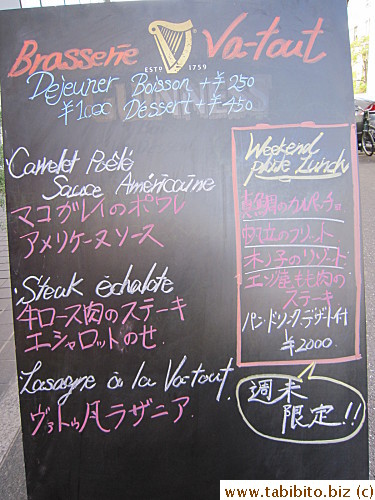 Brasserie Va-tout
ESTD 1759
Déjeuner Boisson + ¥250
¥1,000 Déssert + ¥450
Carrelet Poêlé
Sauce Américaine
マコガレイのポワレ
アメリケーヌソース
Steak èchalote
牛ロース肉のステーキ
エシャロットのせ
Lasagne à la Va-tout
ヴァトゥ風ラザニア
Weekend
plate Lunch
真鯛のカルパッチョ
帆立のフリット
木ノ子のリゾート
もも肉の
ステーキ
パン・ドリンク・デザート付
¥2000
週末
限定!!
www.tabibito.biz (c)